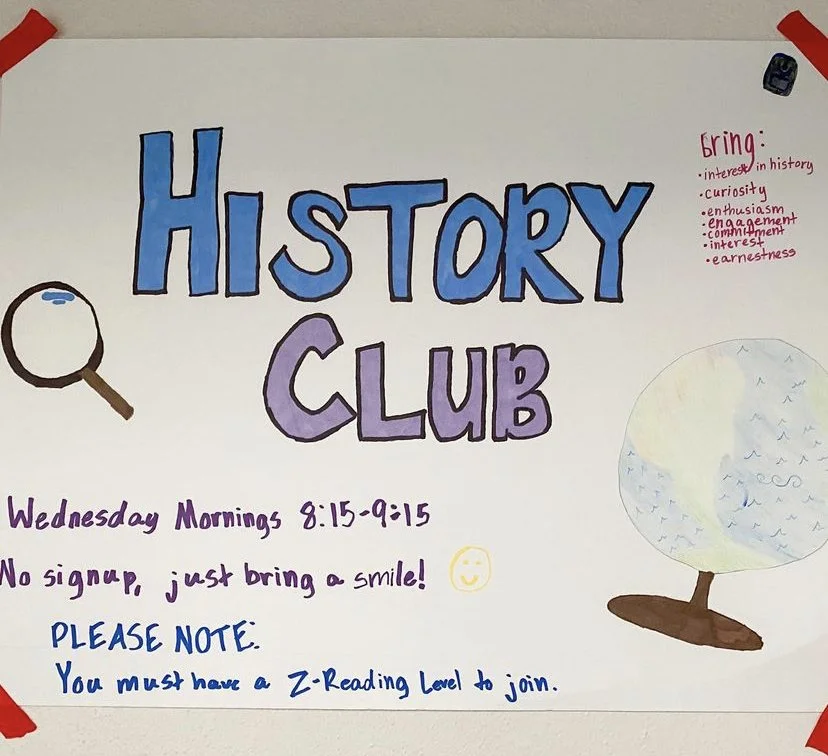 HISTORY
CLUB
Bring:
• interest in history
• curiosity
• enthusiasm
• engagement
• commitment
• interest
• earnestness
Wednesday Mornings 8:15-9:15
No signup, just bring a smile!
PLEASE NOTE:
You must have a Z-Reading Level to join.